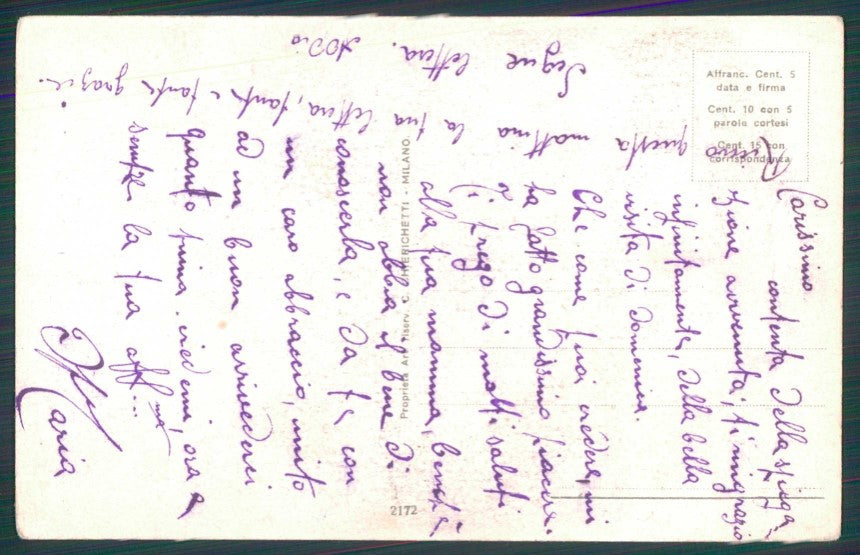 Carissimo
contenta della spiega-
zione avvenuta, ti ringrazio
infinitamente, della bella
visita di domenica.
Che come puoi credere, mi
ha fatto grandissimo piacere.
Ti prego di molti saluti
alla tua mamma, benchè
non abbia il bene di
conoscerla, e da te con
un caro abbraccio, unito
ad un buon arrivederci
quanto prima vedermi, ora e
sempre la tua aff.ma
Maria
Ricevo questa mattina la tua lettera, tante e tante grazie.
Segue lettera. Addio
Affranc. Cent. 5
data e firma
Cent. 10 con 5
parole cortesi
Cent. 15 con
corrispondenza
Proprietà Art. Riserv. C. - MILANO
2172